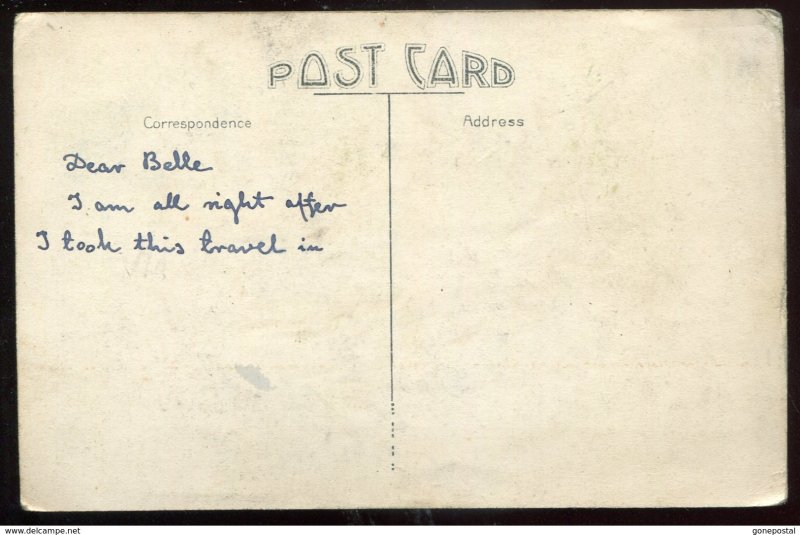 POST CARD
Correspondence
Address
Dear Belle
I am all right after
I took this travel in
www.delcampe.net
gonepostal